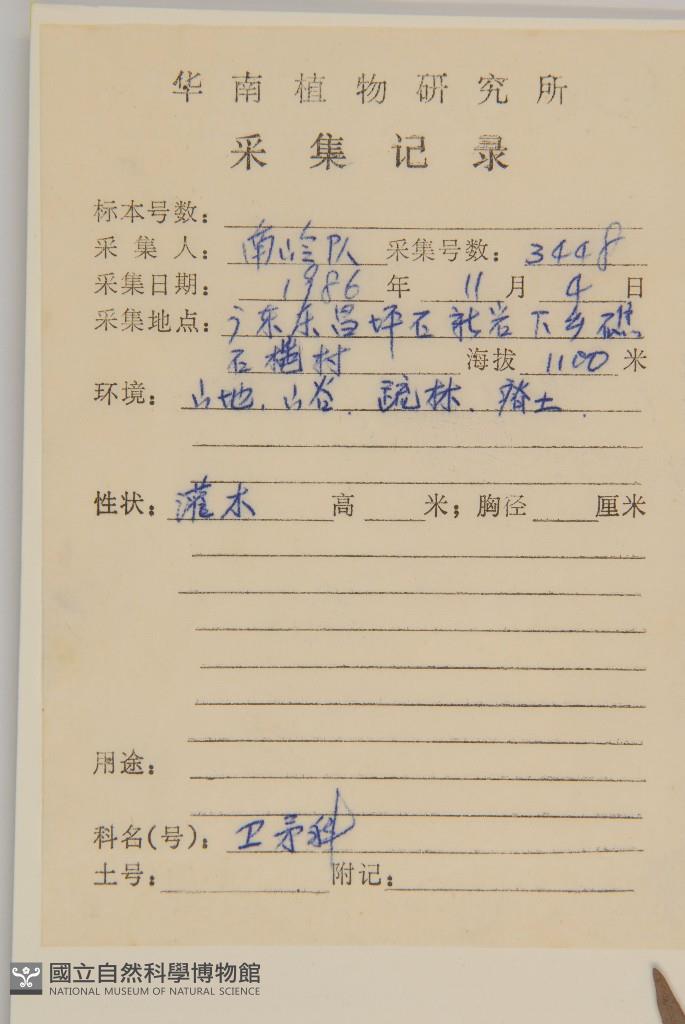 华南植物研究所
采集记录
标本号数：
采集人：南岭队 采集号数：3448
采集日期：1986年11月4日
采集地点：广东乐昌坪石 岩下乡礁
石 村 海拔 1100 米
环境：山地．山谷．疏林．瘠土．
性状：灌木 高 米；胸径 厘米
用途：
科名(号)：卫矛科
土号： 附记：
國立自然科學博物館
NATIONAL MUSEUM OF NATURAL SCIENCE